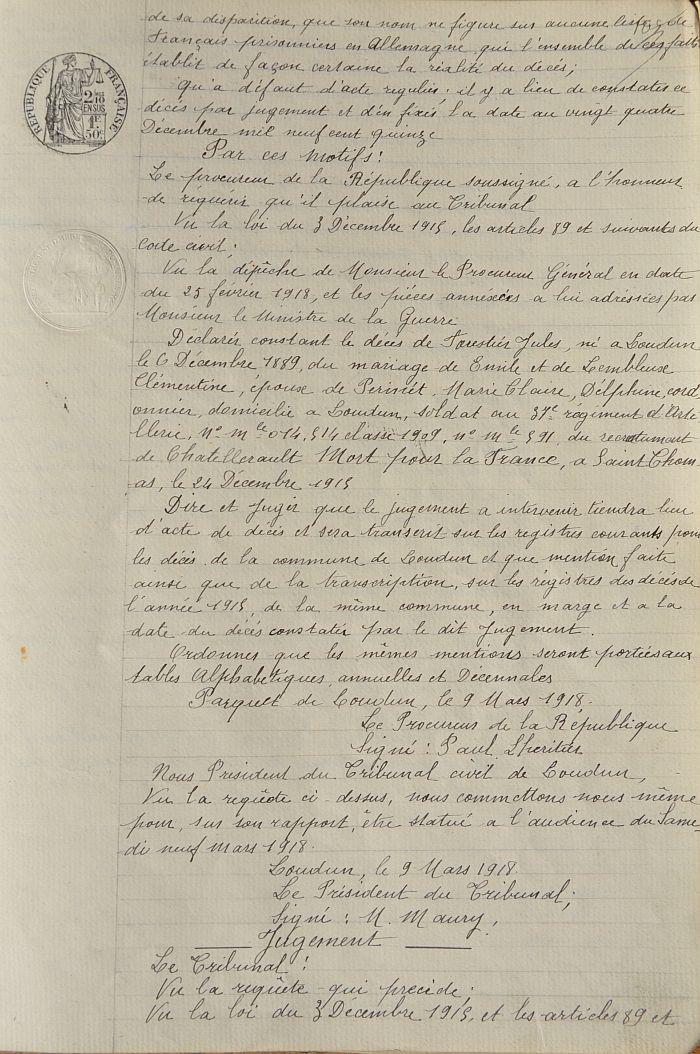 de sa disparition, que son nom ne figure sur aucune liste de
Français prisonniers en Allemagne, qui l'ensemble de ces faits
établit de façon certaine la réalité du décès;
Qu'a défaut d'acte regulier il y a lieu de constater ce
décès par jugement et d'en fixer la date au vingt quatre
Décembre mil neuf cent quinze
Par ces motifs!
Le procureur de la République soussigné, a l'honneur
de réquérir qu'il plaise au Tribunal
Vu la loi du 3 Décembre 1915, les articles 89 et suivants du
Code civil;
Vu la dépêche de Monsieur le Procureur Général en date
du 25 février 1918, et les pièces annéxées a lui adressées par
Monsieur le Ministre de la Guerre
Déclarer constant le décès de Forestier Jules, né a Loudun
le 6 Décembre 1889, du mariage de Emile et de Lembleuse
Clémentine, époux de Marie Claire, Delphine, cord
onnier, domicilié a Loudun, soldat au 37e régiment d'Arti
llerie, No mle 014.514 classe 1909, no mle 591, du recrutement
de Chatellerault Mort pour la France, a Saint Thom
as, le 24 Décembre 1915
Dire et Juger que le jugement a intervenir tiendra lieu
d'acte de décès et sera transcrit sur les registres courants pour
les décès de la commune de Loudun et que mention faite
ainsi que de la transcription, sur les régistres des décès de
l'année 1915, de la même commune, en marge et a la
date du décès constatée par le dit Jugement.
Ordonner que les mêmes mentions seront portées aux
tables Alphabétiques, annuelles et Décennales
Parquet de Loudun, le 9 Mars 1918.
Le Procureur de la République
Signé: Paul Lhéritier
Nous Président du Tribunal civil de Loudun,
Vu la requête ci-dessus, nous commettons nous même
pour, sur son rapport, être statué a l'audience du Same
di neuf mars 1918.
Loudun, le 9 Mars 1918.
Le Président du Tribunal;
Signé: M. Maury.
Jugement
Le Tribunal!
Vu la requête qui précède;
Vu la loi du 3 Décembre 1915, et les articles 89 et
RÉPUBLIQUE FRANÇAISE
2/10
EN SUS
1F
50c